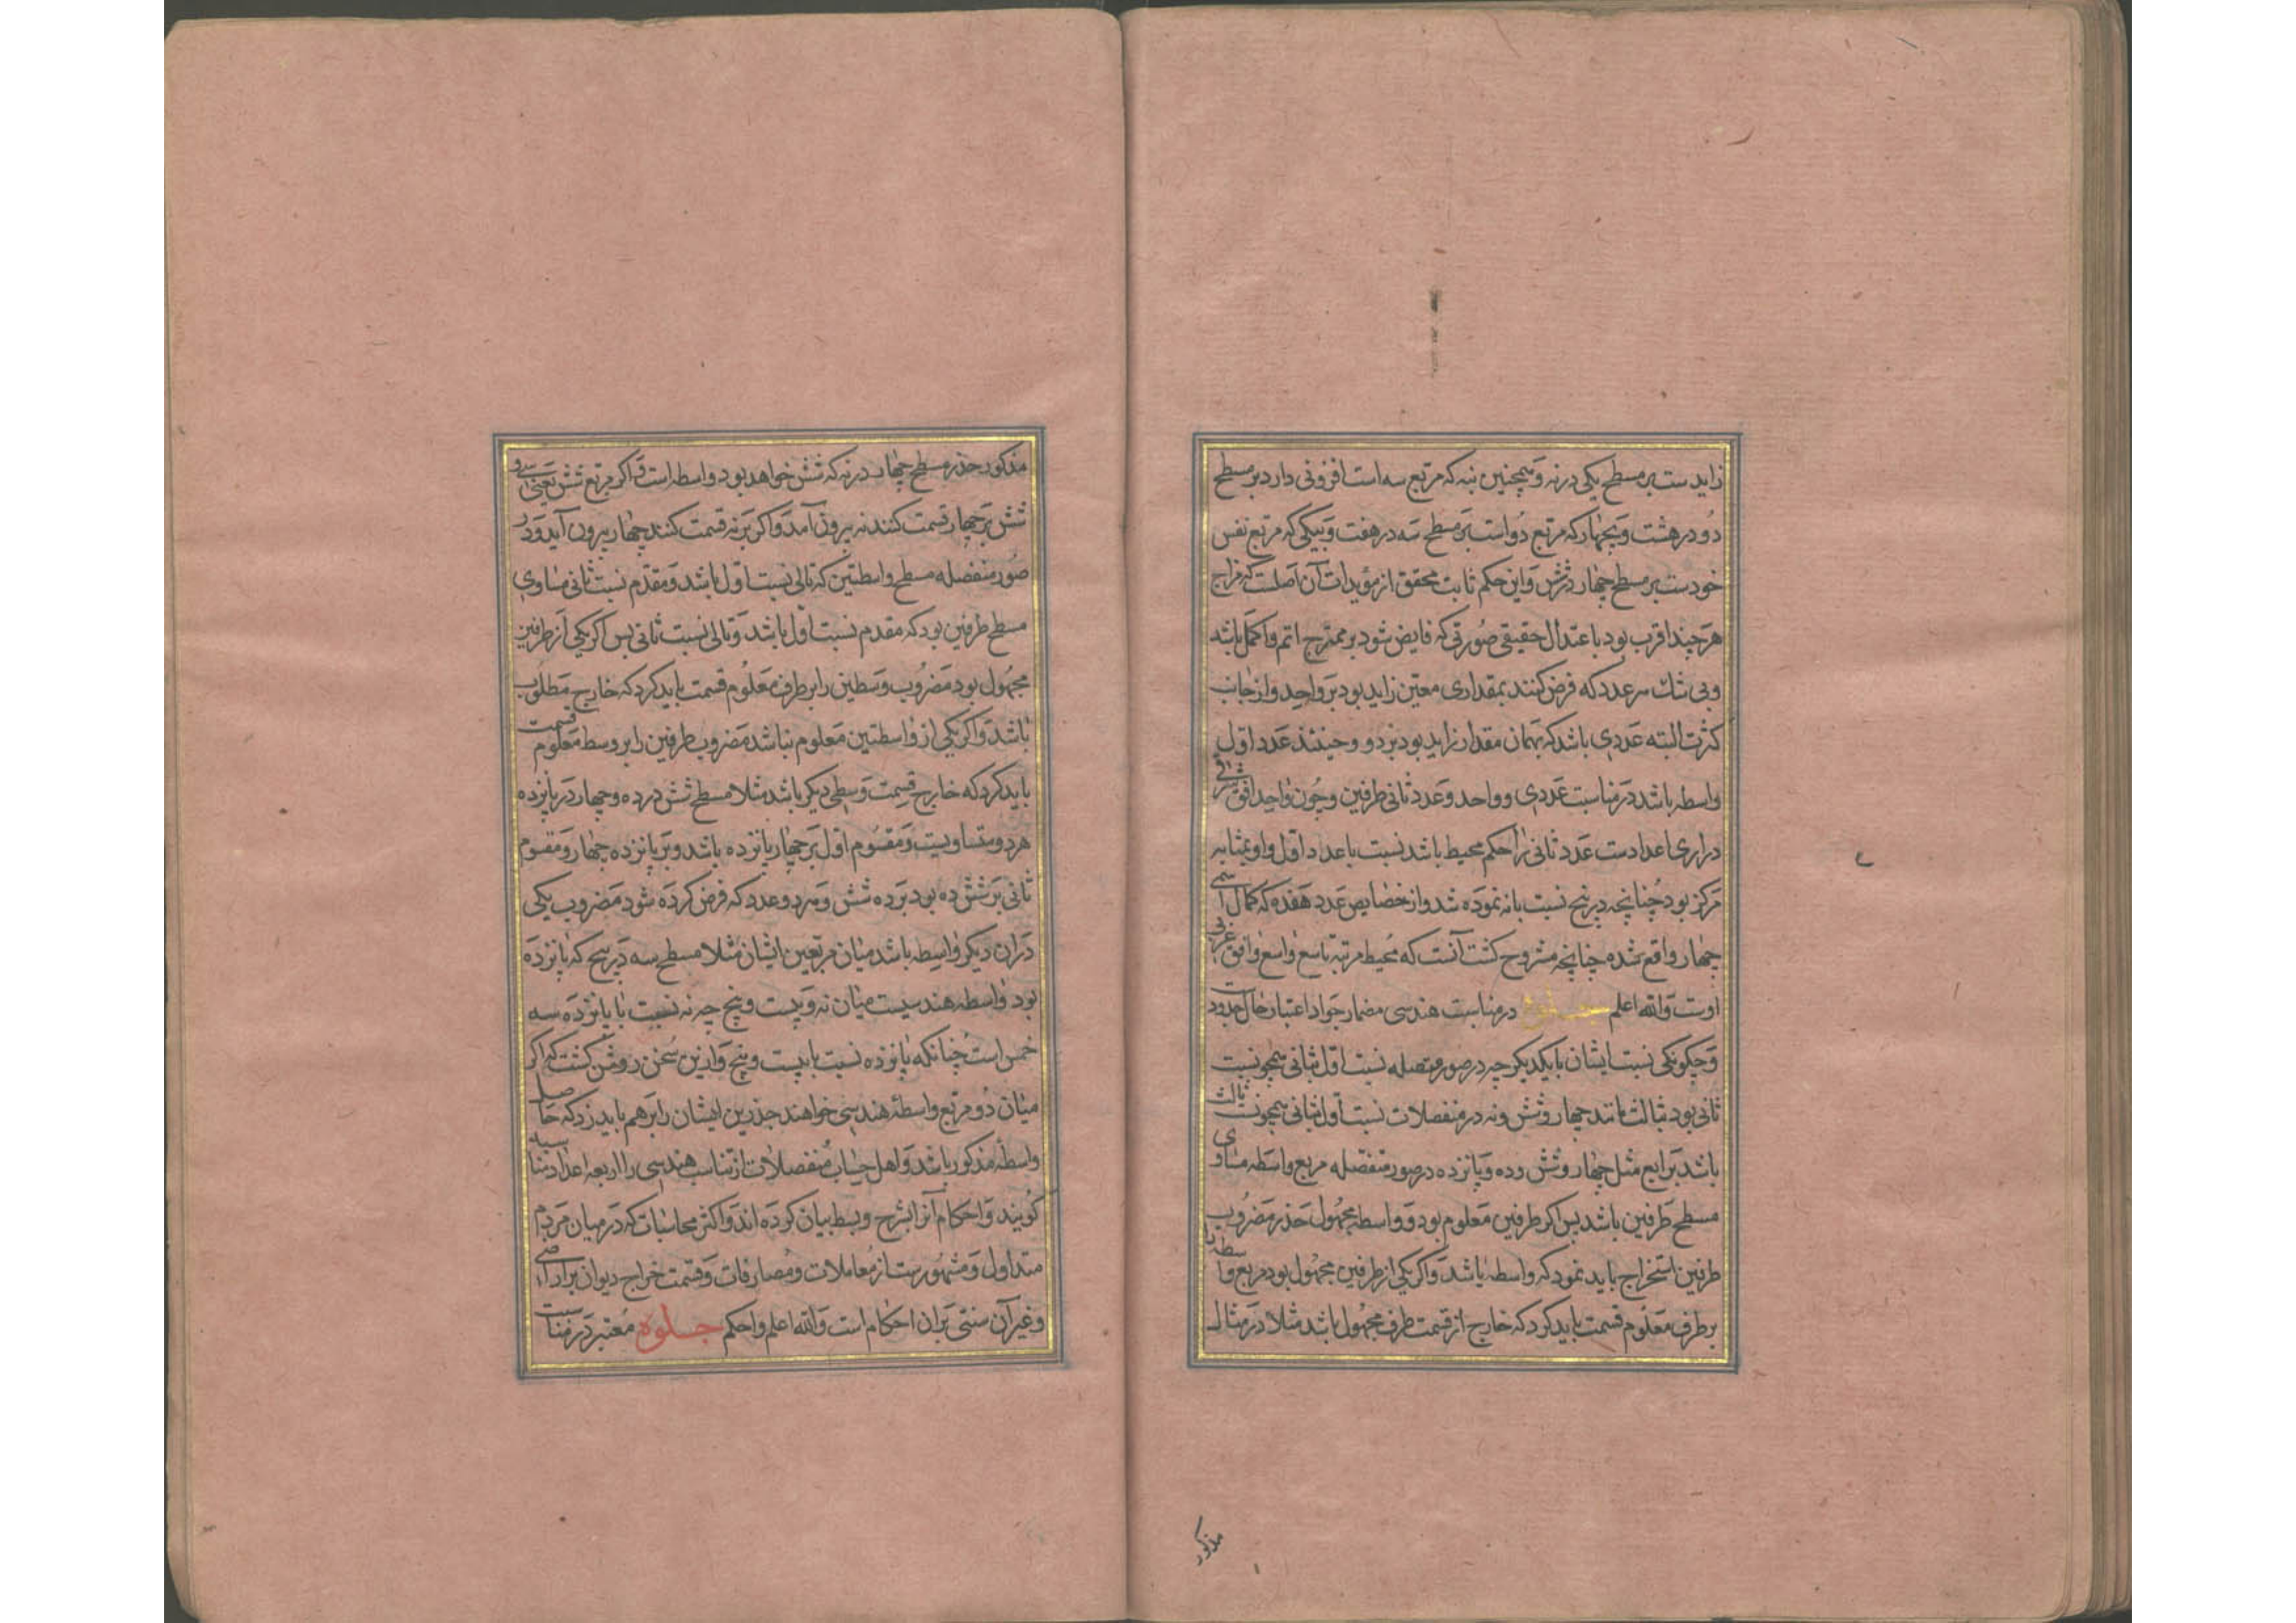 زایدست بر مسطح یکی در نه و همچنین بنه که مربع سه است افزونی دارد بر مسطح
دو در هشت و بچهار که مربع دو است بر مسطح سه در هفت و بیکی که مربع نفس
خودست بر مسطح چهار در شش و این حکم ثابت محقق از مؤیدات آن اصلست که مزاج
هر چند اقرب بود باعتدال حقیقی صورتی که فایض شود بر ممتزج اتم و اکمل باشد
و بی شک هر عدد که فرض کنند بمقداری معین زاید بود بر واحد و از جانب
کثرت البته عددی باشد که بهمان مقدار زاید بود بر دو و حینئذ عدد اول
واسطه باشد در مناسبت عددی و واحد و عدد ثانی طرفین و چون واحد افق شرقی
دراری اعدادست عدد ثانی را حکم محیط باشد نسبت باعداد اول و او بمثابه
مرکز بود چنانچه در پنج نسبت بانه نموده شد و از خصایص عدد هفده که کمال اسمی
چهار واقع شده چنانچه مشروح کشت آنست که محیط مرتبه تاسع واسع وافق غربی
اوست والله اعلم در مناسبت هندسی مضمار جواد اعتبار حال حدود
و چکونکی نسبت ایشان با یکدیکر چه در صور متصله نسبت اول بثانی همچو نسبت
ثانی بود بثالث مانند چهار و شش و نه در منفصلات نسبت اول بثانی همچو نسبت ثالث
باشد برابع مثل چهار و شش و ده و پانزده در صور متصله مربع واسطه مساوی
مسطح طرفین باشد پس اکر طرفین معلوم بود و واسطه مجهول جذر مضروب
طرفین استخراج باید نمود که واسطه باشد و اکر یکی از طرفین مجهول بود مربع واسطه را
بر طرف معلوم قسمت باید کرد که خارج از قسمت طرف مجهول باشد مثلا در مثال
مذکور
مذکور جذر مسطح چهار در نه که شش خواهد بود واسطه است و اکر مربع شش یعنی سی و
شش بر چهار قسمت کنند نه بیرون آمد و اکر بر نه قسمت کنند چهار بیرون آید و در
صور منفصله مسطح واسطتین که تالی نسبت اول باشد و مقدم نسبت ثانی مساوی
مسطح طرفین بود که مقدم نسبت اول باشد و تالی نسبت ثانی پس اکر یکی از طرفین
مجهول بود مضروب وسطین را بر طرف معلوم قسمت باید کرد که خارج مطلوب
باشد و اکر یکی از واسطتین معلوم نباشد مضروب طرفین را بر وسط معلوم قسمت
باید کرد که خارج قسمت وسطی دیکر باشد مثلا مسطح شش در ده و چهار در پانزده
هر دو متساویست و مقسوم اول بر چهار پانزده باشد و بر پانزده چهار و مقسوم
ثانی بر شش ده بود بر ده شش و هر دو عدد که فرض کرده شود مضروب یکی
در ان دیکر واسطه باشد میان مربعین ایشان مثلا مسطح سه در پنج که پانزده
بود واسطه هندسیست میان نه و بیست و پنج چه نه نسبت با پانزده سه
خمس است چنانکه پانزده نسبت با بیست و پنج و ازین سخن روشن کشت که اکر
میان دو مربع واسطه هندسی خواهند جذرین ایشان را بر هم باید زد که حاصل
واسطه مذکور باشد و اهل حساب منفصلات از تناسب هندسی را اربعه اعداد متناسبه
کویند و احکام آنرا بشرح و بسط بیان کرده اند و اکثر محاسبات که در میان مردم
متداول و مشهورست از معاملات و مصارفات و قسمت خراج دیوان بر اراضی
و غیر آن مبتنی بر ان احکام است والله اعلم و احکم جلوه معتبر در مناسبت